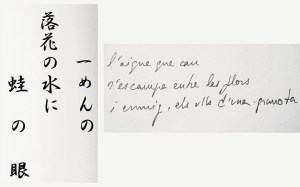 一めんの
落花の水に
蛙の眼
l'aigua que cau
s'escampa entre les flors
i enmig, els ulls d'una granota